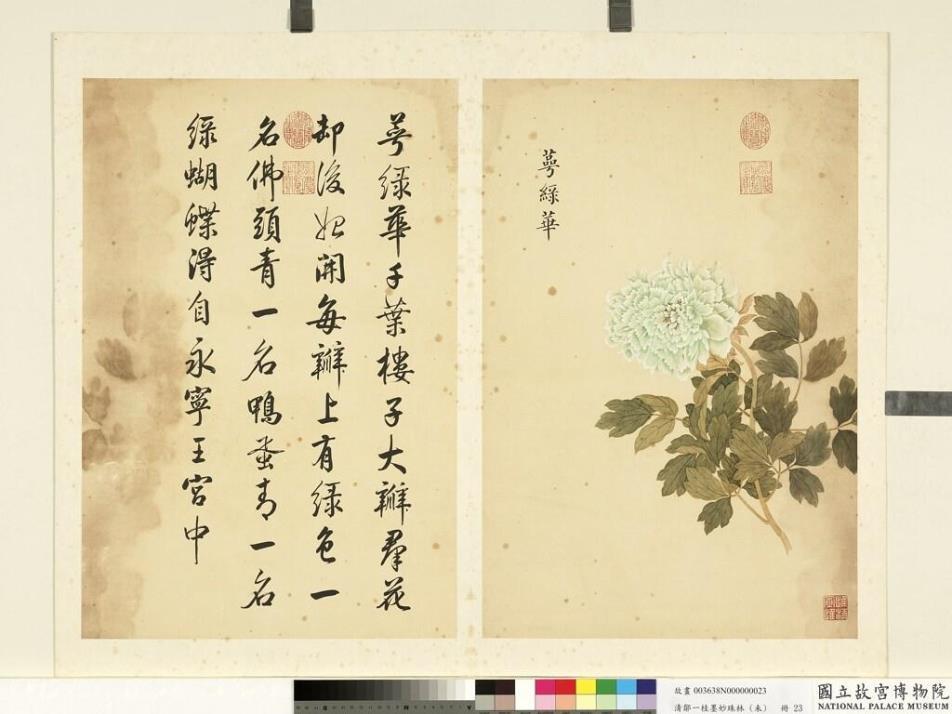 萼綠華
萼綠華千葉樓子大瓣羣花
卸後始開每瓣上有綠色一
名佛頭青一名鴨蛋青一名
綠蝴蝶得自永寧王宮中
故畫 003638N000000023
清鄒一桂墨妙珠林(未) 冊 23
國立故宮博物院
NATIONAL PALACE MUSEUM